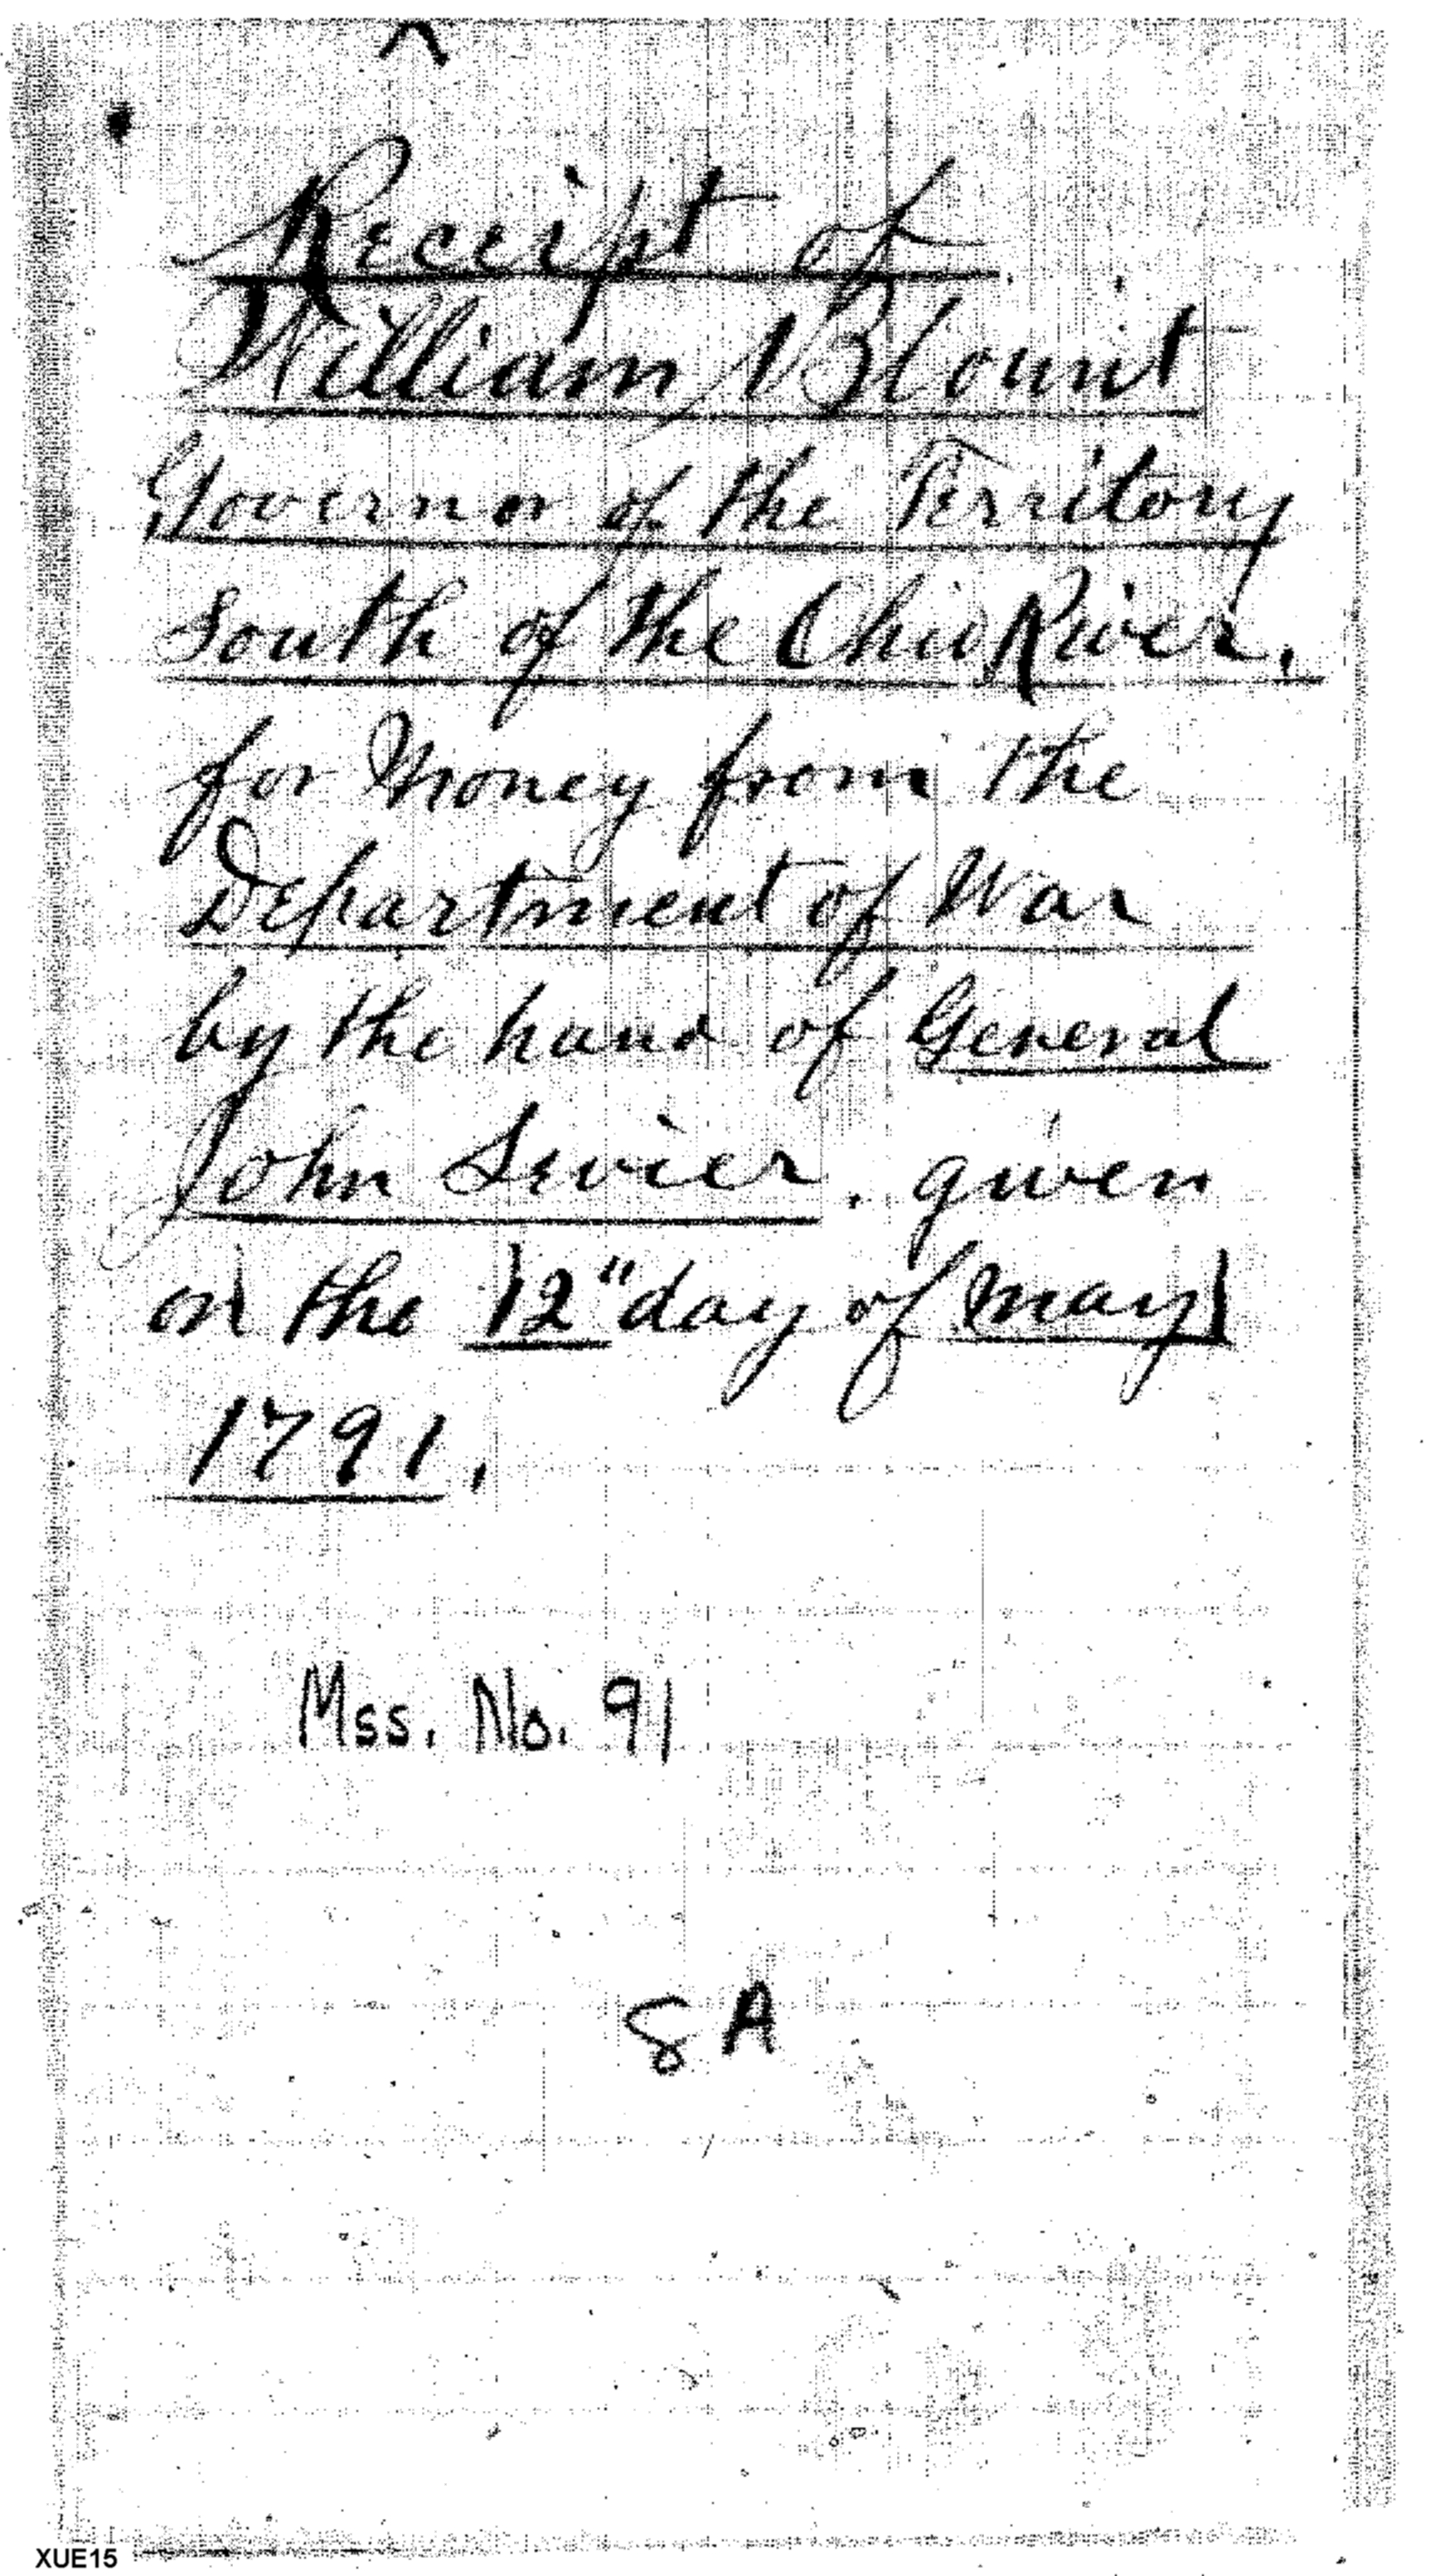 Receipt of
William Blount
Governor of the Territory
South of the Ohio River.
for Money from the
Department of War
by the hand of General
John Sevier. given
on the 12" day of May
1791.
Mss. No. 91
8 A
XUE15